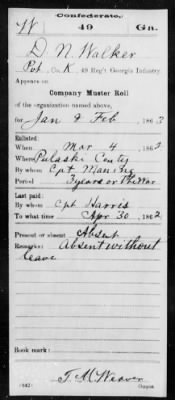 Confederate.
W 49 Ga.
D. N. Walker
Pvt, Co. K, 49 Reg't Georgia Infantry.
Appears on
Company Muster Roll
of the organization named above,
for Jan & Feb, 1863
Enlisted:
When Mar 4, 1862
Where Pulaski County
By whom Cpt Manning
Period 3 years or the War
Last paid:
By whom Cpt Harris
To what time Apr 30, 1862
Present or absent Absent
Remarks: Absent without
leave
Book mark:
T. M. Weaver
(642) Copyist.